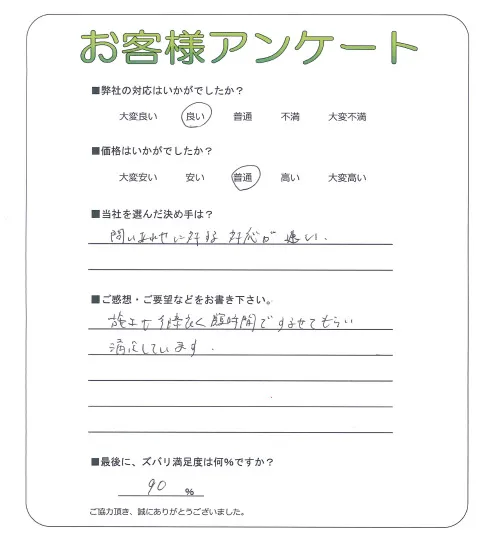 お客様アンケート
■弊社の対応はいかがでしたか？
大変良い 良い 普通 不満 大変不満
■価格はいかがでしたか？
大変安い 安い 普通 高い 大変高い
■当社を選んだ決め手は？
問い合わせに対する対応が速い.
■ご感想・ご要望などをお書き下さい。
施工も手際良く短時間ですませてもらい
満足しています.
■最後に、ズバリ満足度は何％ですか？
90 %
ご協力頂き、誠にありがとうございました。